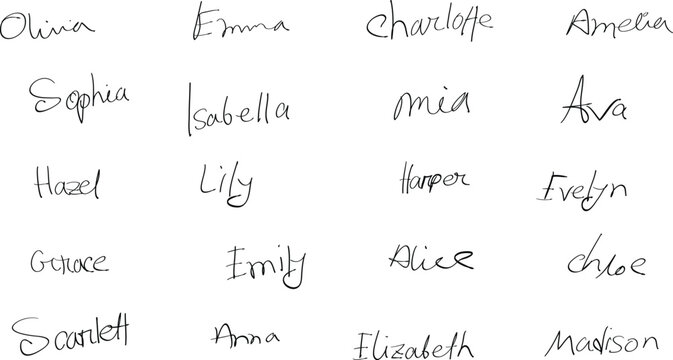 Olivia Emma Charlotte Amelia
Sophia Isabella Mia Ava
Hazel Lily Harper Evelyn
Grace Emily Alice Chloe
Scarlett Anna Elizabeth Madison